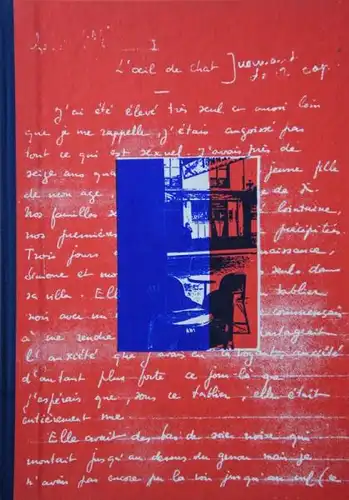 I
L'œil de chat
J'ai été élevé très seul et aussi loin
que je me rappelle, j'étais angoissé par
tout ce qui est sexuel. J'avais près de
seize ans jeune fille
de mon age de X.
Nos familles lointaine,
nos premières précipités.
Trois jours
Simone et seuls dans
sa villa. Elle tablier
noir avec un commençais
à me rendre partageait
l'anxiété que j'avais en la voyant, anxiété
d'autant plus forte ce jour-là que
j'espérais que, sous ce tablier, elle était
entièrement nue.
Elle avait des bas de soie noire qui
montait jusqu'au dessus du genou mais je
n'avais pas encore pu la voir jusqu'au cul (ce